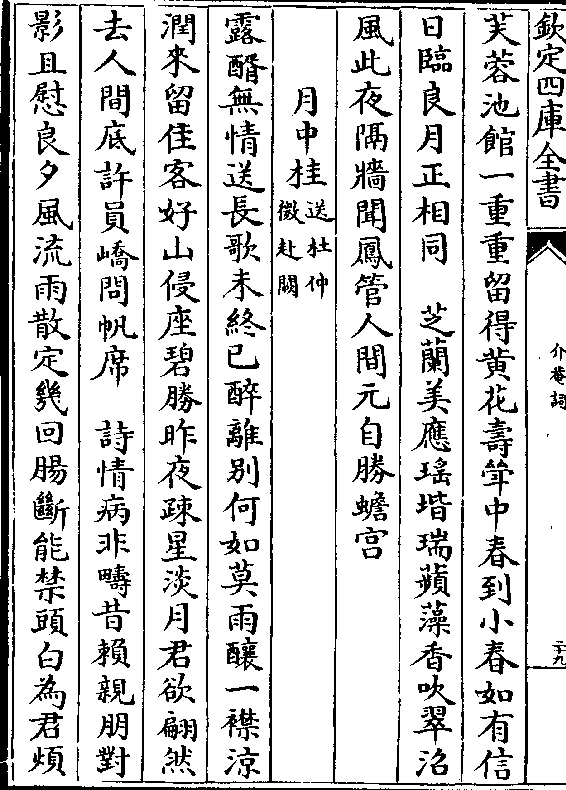 欽定四庫全書
介菴詞
二十九
芙蓉池館一重重留得黄花壽斝中春到小春如有信
日臨良月正相同　芝蘭美應瑶堦瑞蘋藻香吹翠沼
風此夜隔牆聞鳳管人間元自勝蟾宫
月中桂送杜仲
微赴闕
露醑無情送長歌未終已醉離别何如莫雨釀一襟涼
潤來留住客好山侵座碧勝昨夜疎星淡月君欲翩然
去人間底許員嶠問帆席　詩情病非疇昔賴親朋對
影且慰良夕風流雨散定幾回腸斷能禁頭白為君煩